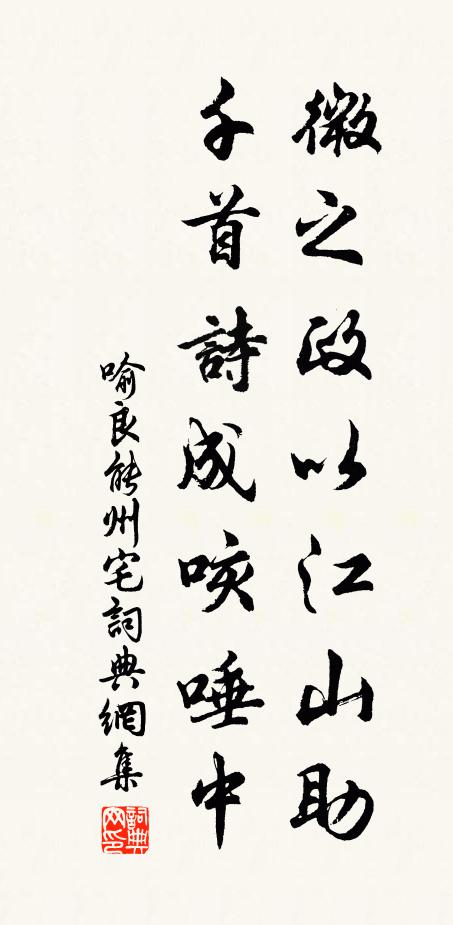 微之政以江山助
千首詩成咳唾中
喻良能州宅詞典網集
詞典網印